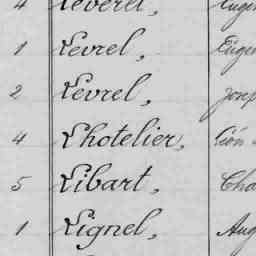 4 Leveret, Eugen
1 Levrel, Eugen
2 Levrel, Josep
4 Lhotelier, Léon
5 Libart, Cha
1 Lignel, Aug